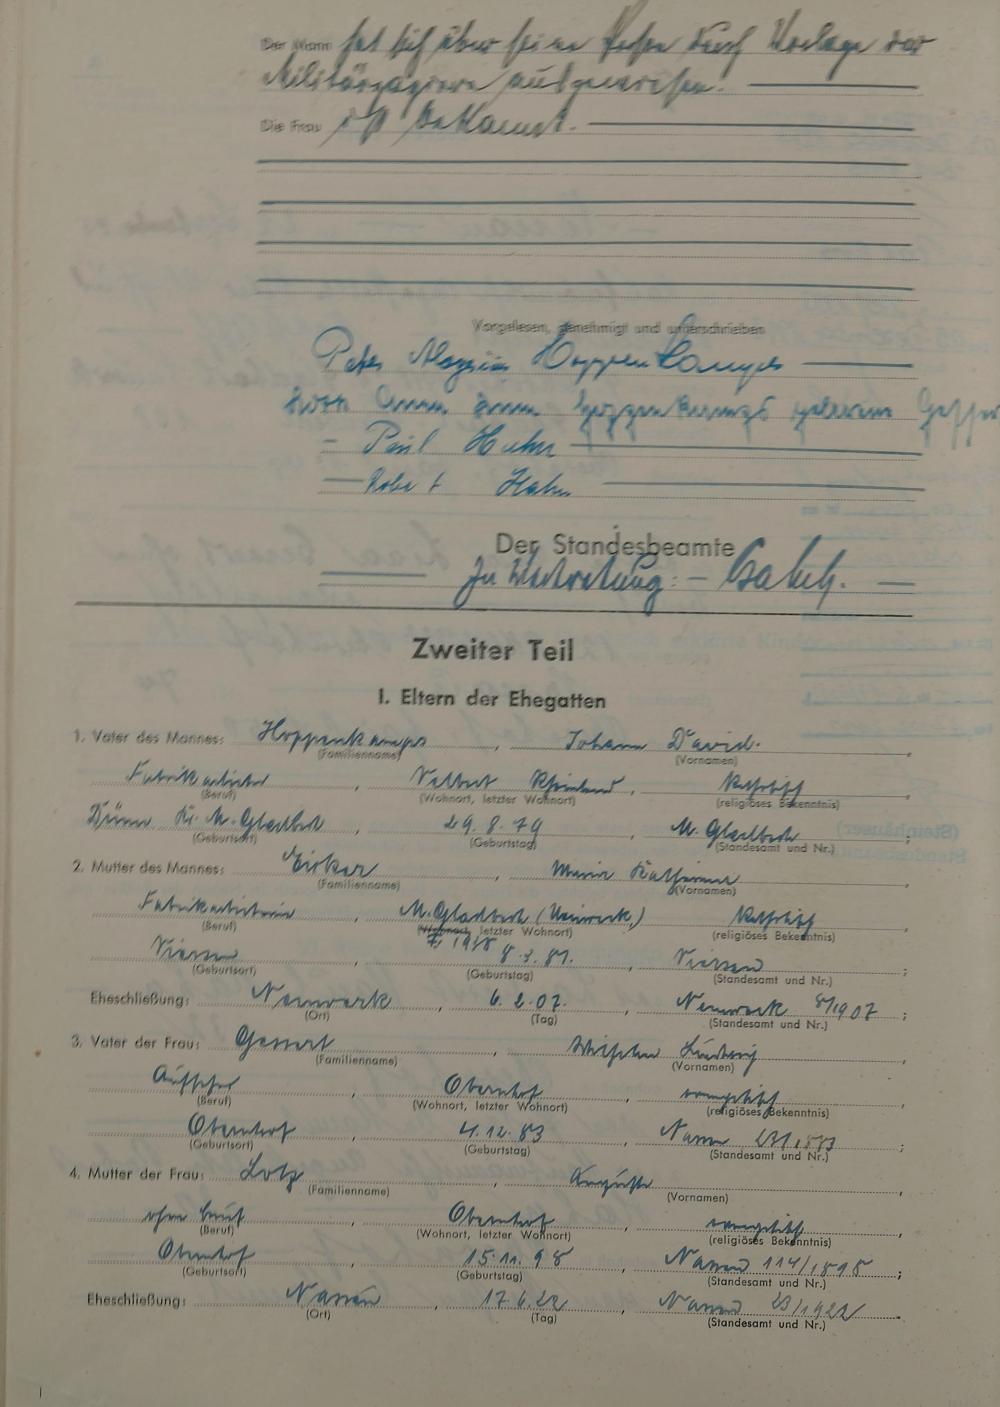 Der Mann hat sich über seine Person durch Vorlage der
Militärpapiere ausgewiesen.
Die Frau ist bekannt.
Vorgelesen, genehmigt und unterschrieben
Peter Aloysius Hoppenkamps
Anna Hoppenkamps geborene
Paul Hahn
Robert Hahn
Der Standesbeamte
In Vertretung:
Zweiter Teil
I. Eltern der Ehegatten
1. Vater des Mannes: Hoppenkamps, Johann David.
(Familienname) (Vornamen)
Fabrikarbeiter, Velbert Rheinland, katholisch,
(Beruf) (Wohnort, letzter Wohnort) (religiöses Bekenntnis)
Kr. M. Gladbach, 29.8.79, M. Gladbach;
(Geburtsort) (Geburtstag) (Standesamt und Nr.)
2. Mutter des Mannes: , Maria Katharina,
(Familienname) (Vornamen)
Fabrikarbeiterin, M. Gladbach (Neuwerk), katholisch,
(Beruf) (Wohnort, letzter Wohnort) (religiöses Bekenntnis)
Viersen, 8.3.81., Viersen;
(Geburtsort) (Geburtstag) (Standesamt und Nr.)
Eheschließung: Neuwerk, 6.2.07., Neuwerk 8/1907;
(Ort) (Tag) (Standesamt und Nr.)
3. Vater der Frau: , Wilhelm Ludwig,
(Familienname) (Vornamen)
Obernhof, evangelisch,
(Beruf) (Wohnort, letzter Wohnort) (religiöses Bekenntnis)
Obernhof, 4.12.83, Nassau;
(Geburtsort) (Geburtstag) (Standesamt und Nr.)
4. Mutter der Frau: Lotz, Auguste,
(Familienname) (Vornamen)
ohne Beruf, Obernhof, evangelisch,
(Beruf) (Wohnort, letzter Wohnort) (religiöses Bekenntnis)
Obernhof, 15.11.98, Nassau 114/1898;
(Geburtsort) (Geburtstag) (Standesamt und Nr.)
Eheschließung: Nassau, 17.6.22, Nassau 23/1922.
(Ort) (Tag) (Standesamt und Nr.)